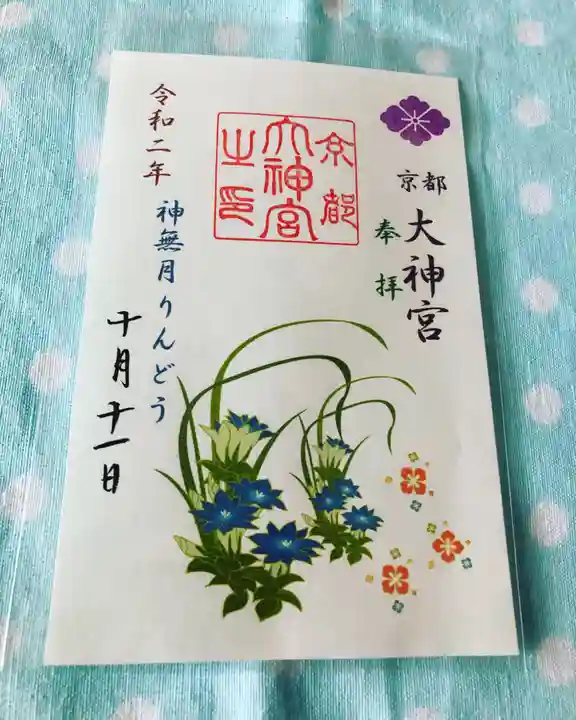 京都
大神宮
奉拝
京都
大神宮
之印
神無月りんどう
令和二年
十月十一日